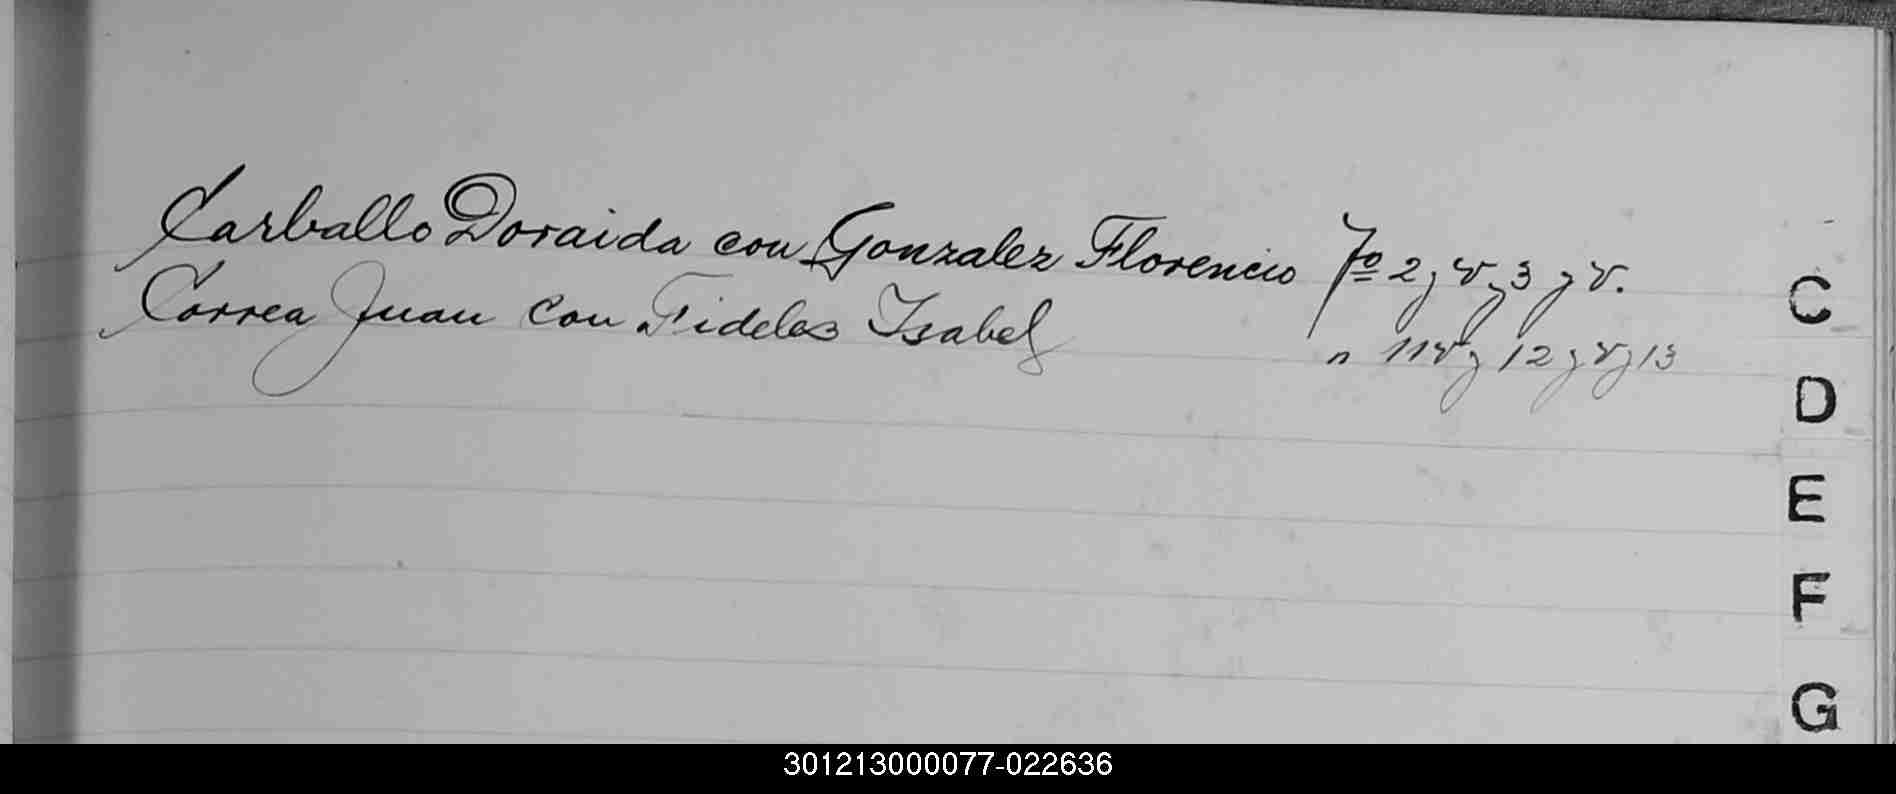 Carballo Doraida con Gonzalez Florencio Fº 2 y v y 3 y v.
Correa Juan con Fideles Isabel " 11 v y 12 y v y 13
C
D
E
F
G
301213000077-022636